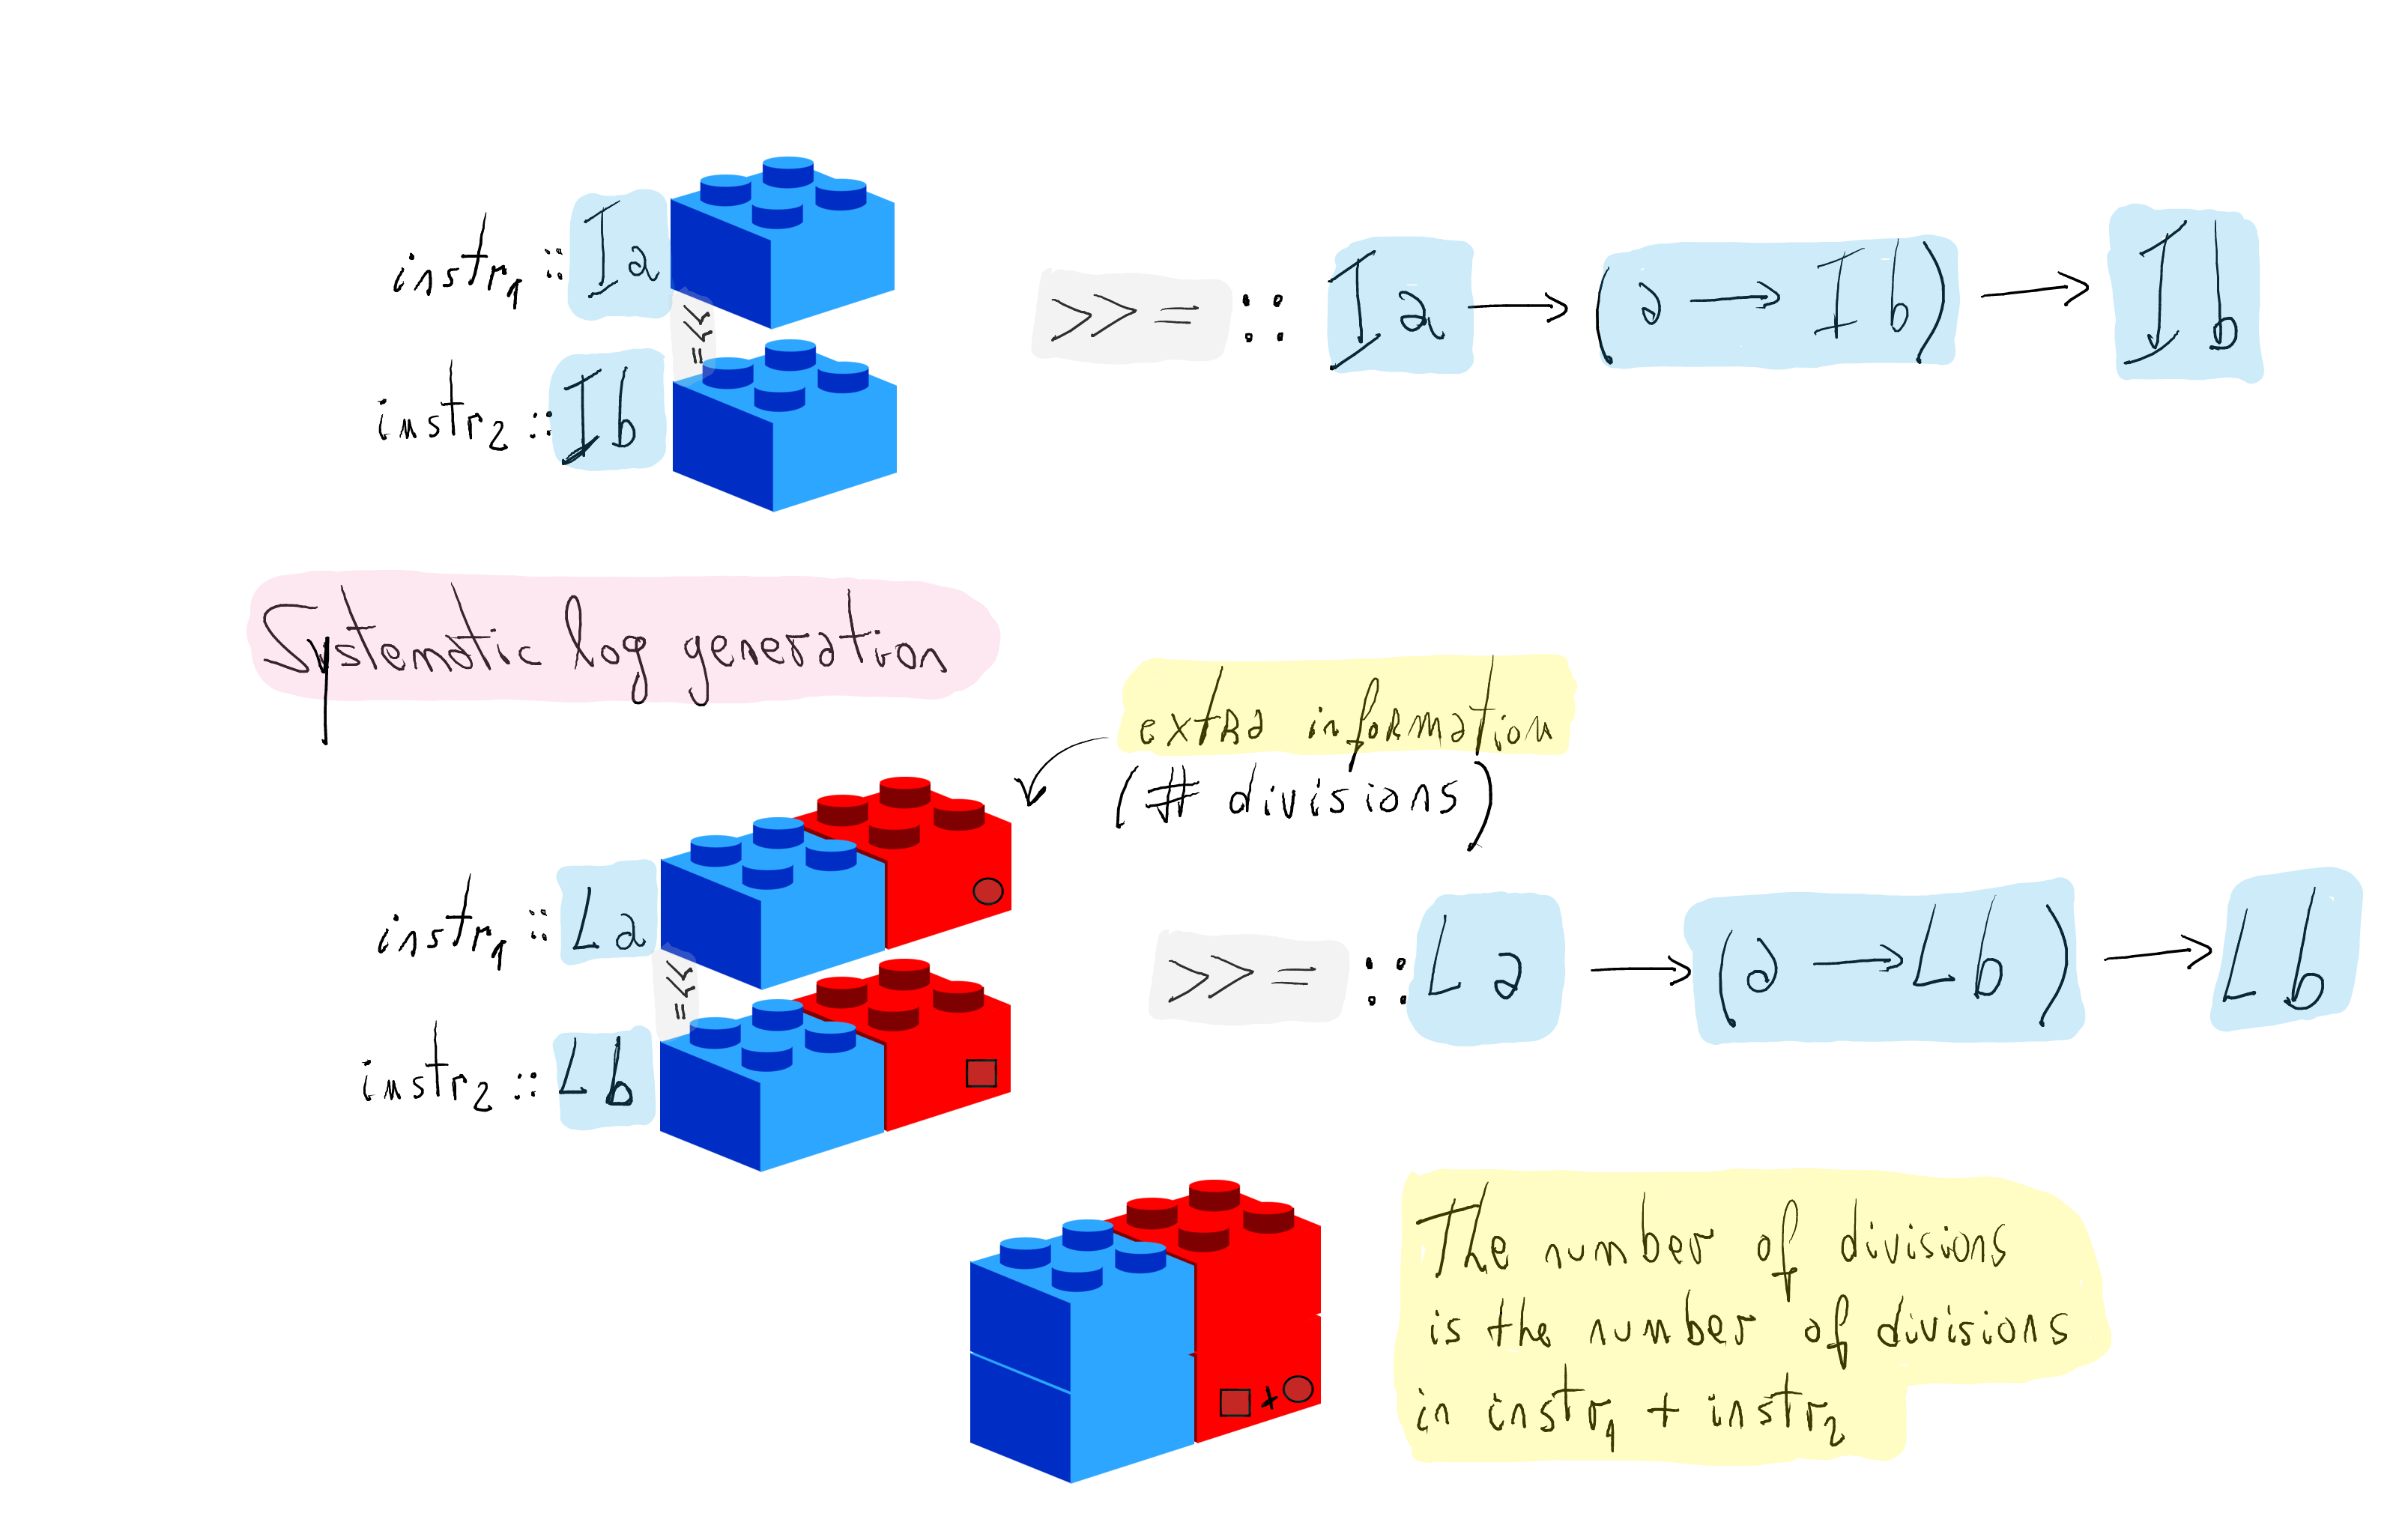 instr1 :: I a
>>=
instr2 :: I b
>>= :: I a → (a → I b) → I b
Systematic log generation
extra information
(# divisions)
instr1 :: L a
>>=
instr2 :: L b
>>= :: L a → (a → L b) → L b
+
The number of divisions
is the number of divisions
in instr1 + instr2